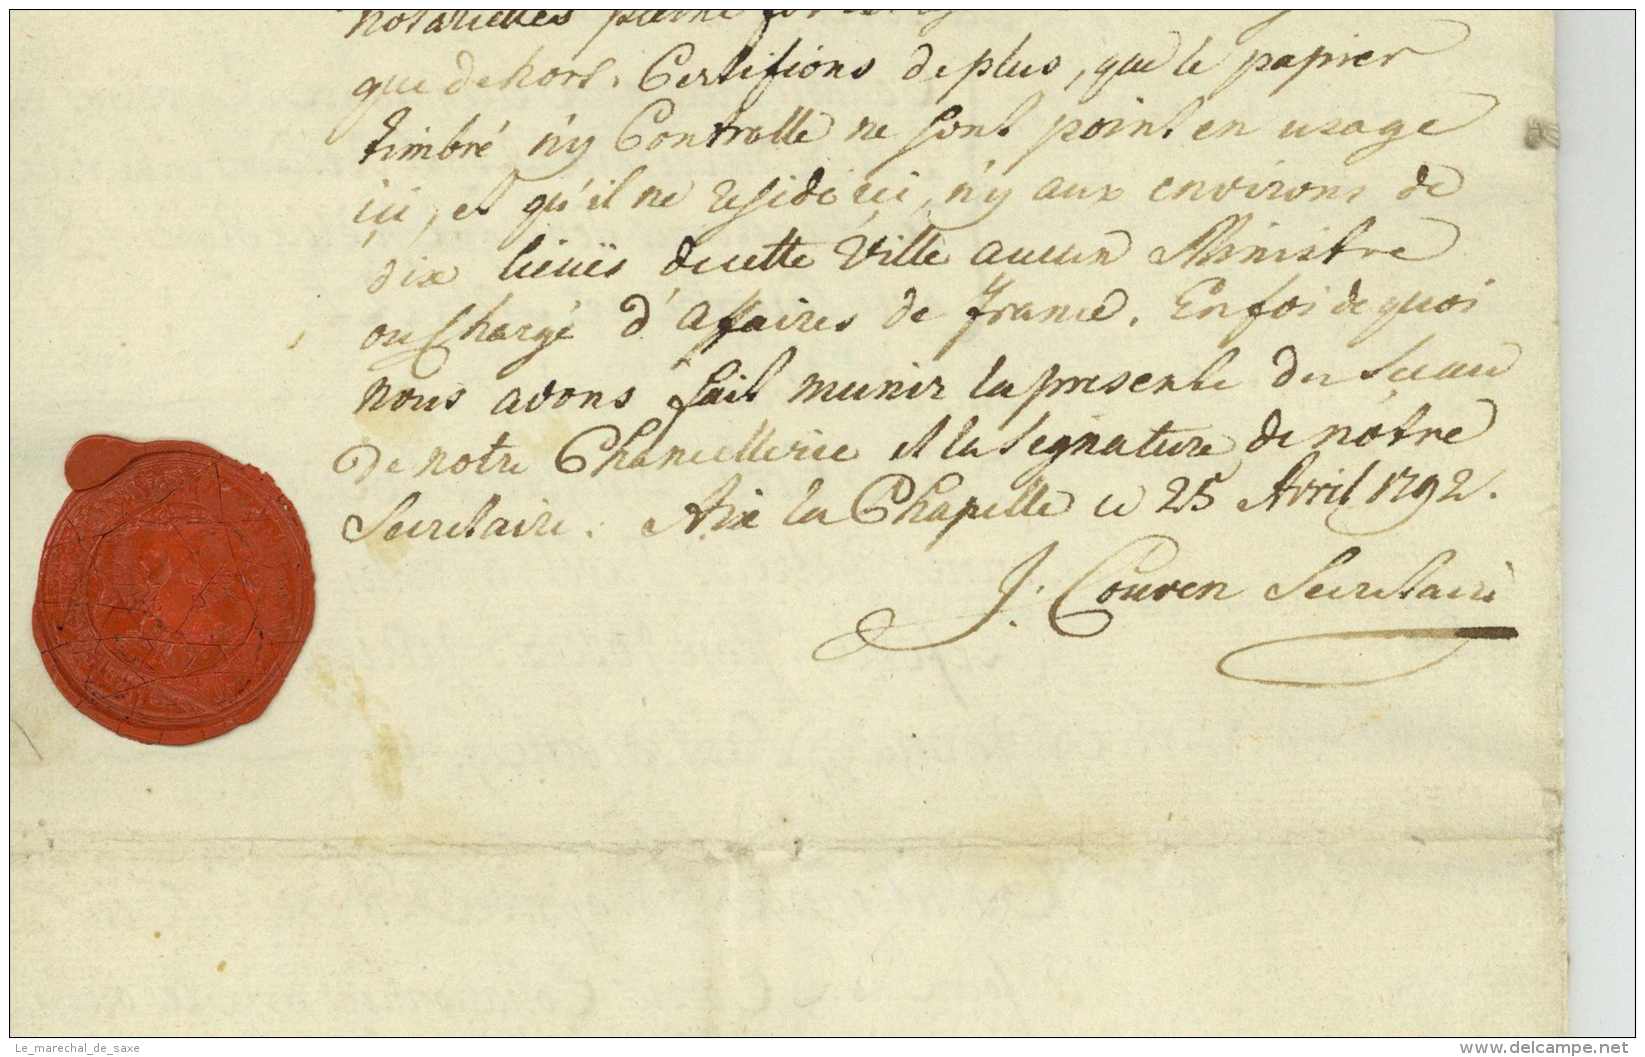 notarielles pleine
que dehors. Certifions de plus, que le papier
timbré n'y Controlle ne sont point en usage
ici, et qu'il ne reside ici, n'y aux environs de
dix lieuës de cette Ville aucun Ministre
ou Chargé d'affaires de France. En foi de quoi
nous avons fait munir la presente du Sceau
de notre Chancellerie et la Signature de notre
Secretaire. Aix la Chapelle ce 25 Avril 1792.
J. Couven Secretaire
Le_marechal_de_saxe
delcampe.net